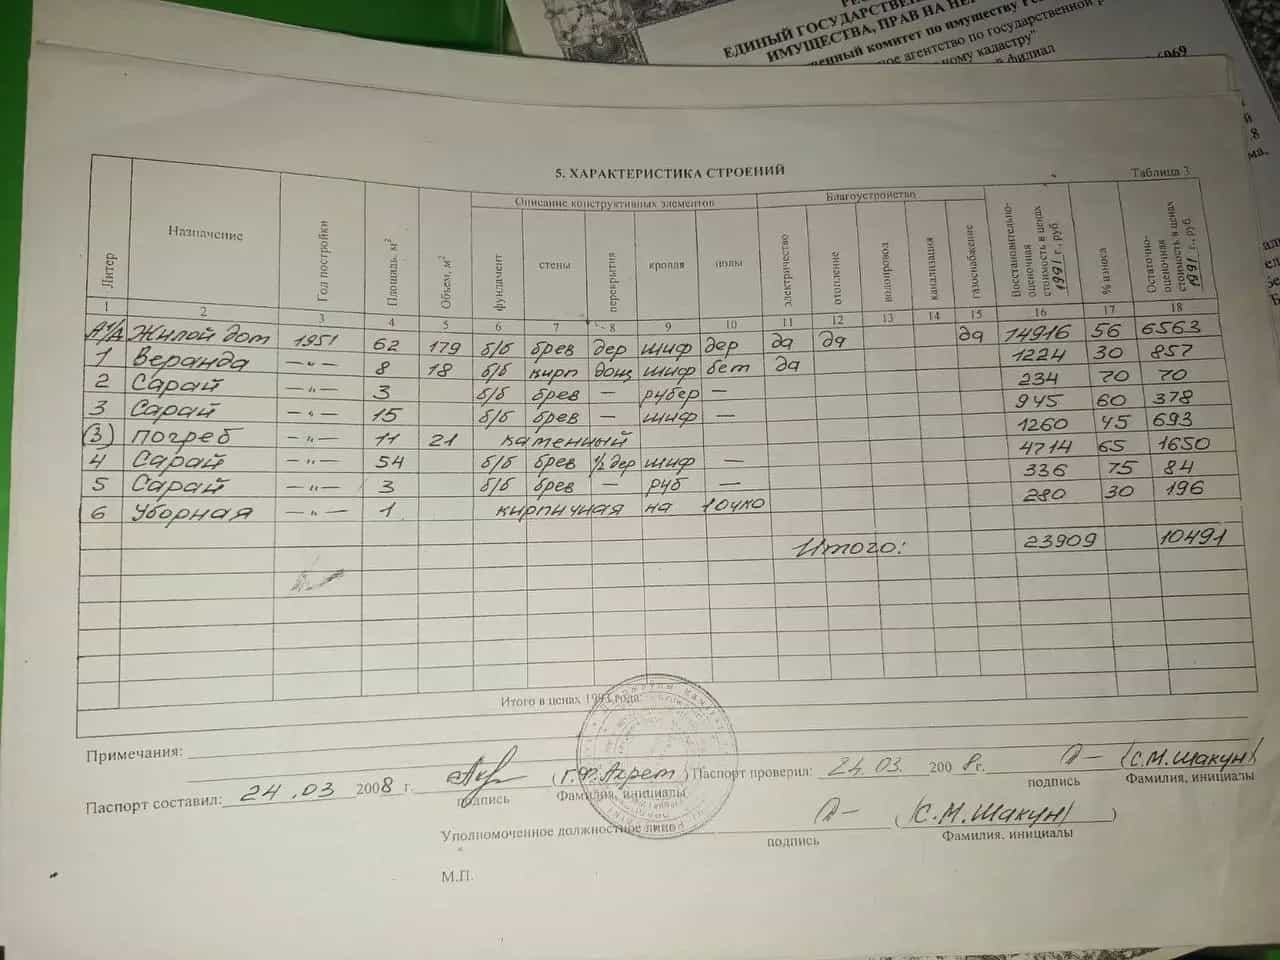 ЕДИНЫЙ ГОСУДАРСТВЕН
ИМУЩЕСТВА, ПРАВ НА НЕ
енный комитет по имуществу
ное агентство по государственной
ному кадастру"
филиал
6969
5. ХАРАКТЕРИСТИКА СТРОЕНИЙ
Таблица 3
Литер Назначение Год постройки Площадь, м² Объем, м² Описание конструктивных элементов Благоустройство Восстановительно-оценочная стоимость в ценах 1991 г., руб % износа Остаточно-оценочная стоимость в ценах 1991 г., руб
фундамент стены перекрытия кровля полы электричество отопление водопровод канализация газоснабжение
1 2 3 4 5 6 7 8 9 10 11 12 13 14 15 16 17 18
А1/д Жилой дом 1951 62 179 б/б брев дер шиф дер да да да 14916 56 6563
1 Веранда —"— 8 18 б/б кирп дощ шиф бет да 1224 30 857
2 Сарай —"— 3 б/б брев — рубер — 234 70 70
3 Сарай —"— 15 б/б брев — шиф — 945 60 378
(3) погреб —"— 11 21 каменный 1260 45 693
4 Сарай —"— 54 б/б брев 1/2 дер шиф — 4714 65 1650
5 Сарай —"— 3 б/б брев — руб — 336 75 84
6 Уборная —"— 1 кирпичная на 1очко 280 30 196
Итого: 23909 10491
Итого в ценах 1993 года:
Примечания:
Паспорт составил: 24.03 2008 г. (Г.Ф.Ахрет) Паспорт проверил: 24.03. 2008г. (С.М.Шакун)
подпись Фамилия, инициалы подпись Фамилия, инициалы
Уполномоченное должностное лицо (С.М.Шакун)
подпись Фамилия, инициалы
М.П.